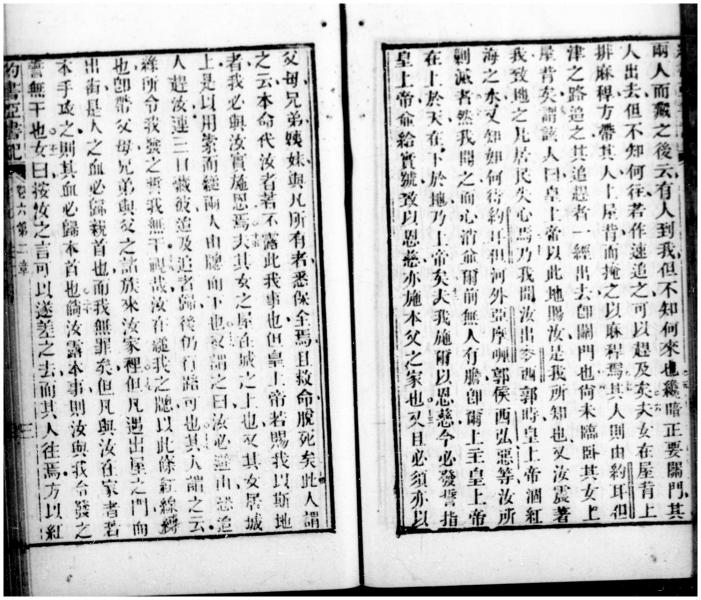 兩人而藏之後云有人到我但不知何來也纔暗正要關門其
人出去但不知何往若作速追之可以趕及矣夫女在屋背上
排麻稈方帶其人上屋背而掩之以麻稈焉其人則由約耳但
津之路追之其追趕者一經出去卽關門也尚未臨臥其女上
屋背矣謂該人曰皇上帝以此地賜汝是我所知也又汝震著
我致地之凡居民失心焉乃我聞汝出
時皇上帝涸紅
海之水又知如何待約耳但河外亞摩唎郭侯西弘亞等汝所
剿滅者然我聞之而心消爾前無人有膽卽爾上主皇上帝
在上於天在下於地乃上帝矣夫我施爾以恩慈今必發誓指
皇上帝俞給實號致以恩慈亦施本父之家也又且必須亦以
父母兄弟姨妹與凡所有者悉保全焉且救命脫死矣此人謂
之云本命代汝者若不露此我事也但皇上帝若賜我以斯地
者我必與汝實施恩焉夫其女之屋在城之上也又其女居城
上是以用索而縋兩人由牕而下也又謂之曰汝必避山恐追
人趕汝連三日藏彼追及追者歸後仍有路可也其人謂之云
除所令我發之誓我無干視哉汝在縋我之牕以此條紅線縛
也卽帶父母兄弟與父之諸族來汝家裡但凡遇出屋之門而
出街是人之血必歸親首也而我無罪矣但凡與汝在家者若
本手攻之則其血必歸本首也倘汝露本事則汝與我令發之
誓無干也女曰按汝之言可以遂差之去而其人往焉方以紅
約書亞書記 卷六第二章